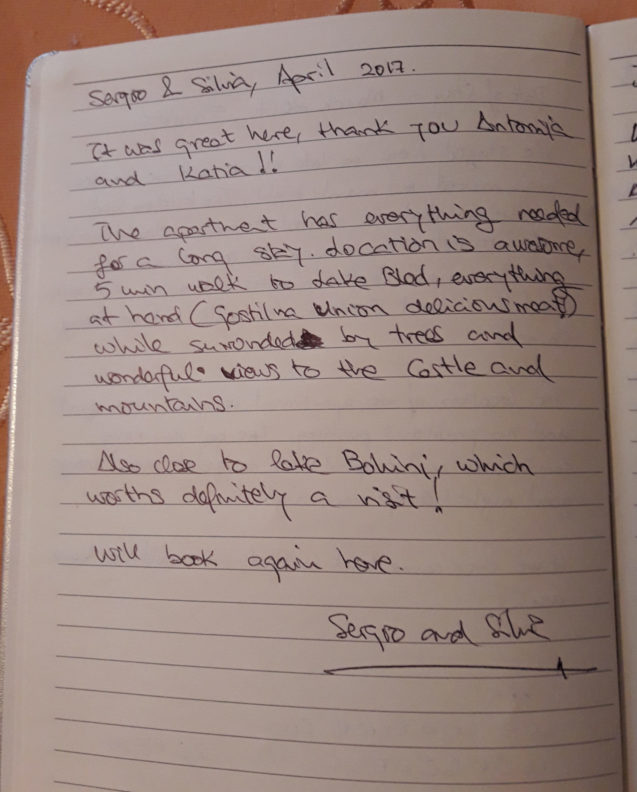 Sergio & Silvia, April 2017.
It was great here, thank you Antonija
and Katia!!
The apartment has everything needed
for a long stay. Location is awesome,
5 min walk to Lake Bled, everything
at hand (Gostilna Union delicious meat)
while surronded by trees and
wonderful views to the Castle and
mountains.
Also close to lake Bohinj, which
worths definitely a visit!
Will book again here.
Sergio and Silvia